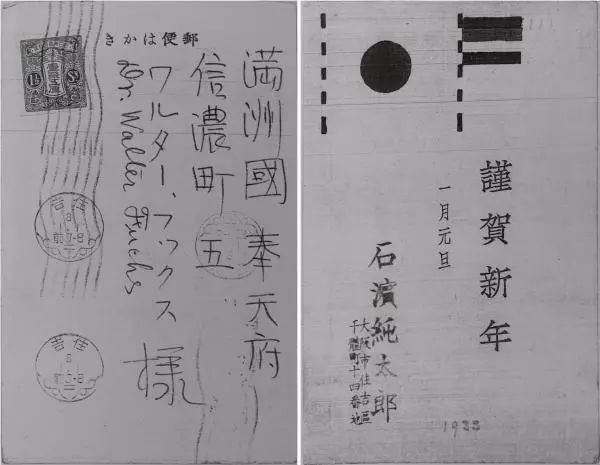 郵便はかき
1½ Sn.
満洲國奉天府
信濃町五
ワルター、フックス
Dr. Walter Fuchs
様
住吉
8
前7-8
住吉
謹賀新年
一月元旦
石濱純太郎
大阪市住吉區
千體町十四番地
1933